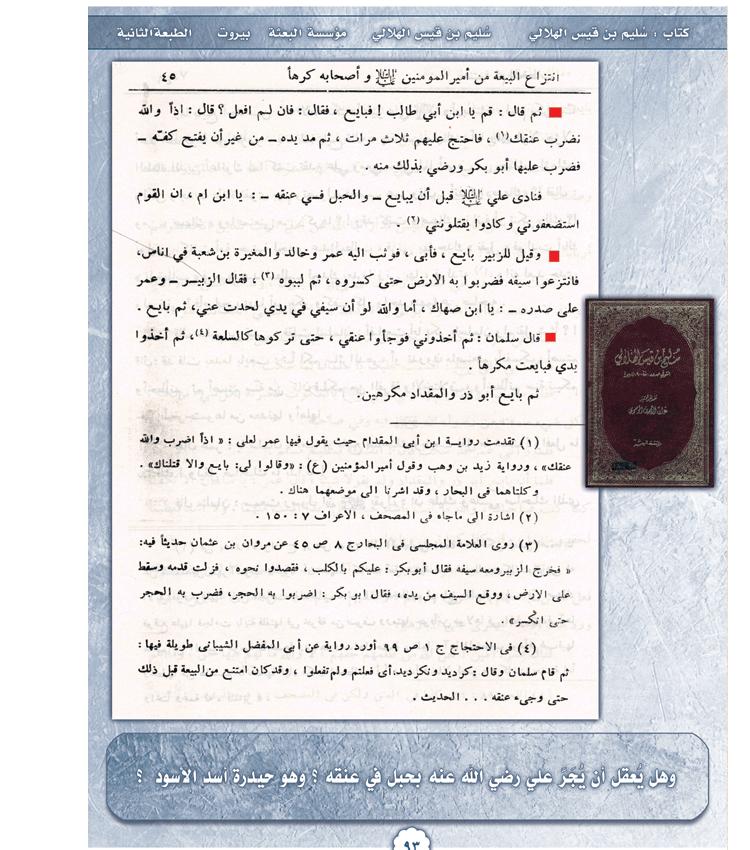 كتاب : سُليم بن قيس الهلالي سُليم بن قيس الهلالي مؤسسة البعثة بيروت الطبعة الثانية
انتزاع البيعة من أمير المومنين عليه السلام و أصحابه كرهاً ٤٥
ثم قال : قم يا ابن أبي طالب ! فبايع ، فقال : فان لم افعل ؟ قال : اذاً والله
نضرب عنقك(١) ، فاحتج عليهم ثلاث مرات ، ثم مد يده ــ من غير أن يفتح كفه ــ
فضرب عليها أبو بكر ورضي بذلك منه .
فنادى علي عليه السلام قبل أن يبايع ــ والحبل في عنقه ــ : يا ابن ام ، ان القوم
استضعفوني وكادوا يقتلونني (٢) .
وقيل للزبير بايع ، فأبى ، فوثب اليه عمر وخالد والمغيرة بن شعبة في اناس،
فانتزعوا سيفه فضربوا به الارض حتى كسروه ، ثم لببوه (٣) ، فقال الزبير ــ وعمر
على صدره ــ : يا ابن صهاك ، أما والله لو أن سيفي في يدي لحدت عني، ثم بايع .
قال سلمان : ثم أخذوني فوجأوا عنقي ، حتى تركوها كالسلعة (٤)، ثم أخذوا
يدي فبايعت مكرهاً .
ثم بايع أبو ذر والمقداد مكرهين.
(١) تقدمت رواية ابن أبى المقدام حيث يقول فيها عمر لعلى : « اذاً اضرب والله
عنقك» ، ورواية زيد بن وهب وقول أمير المؤمنين (ع) : «وقالوا لى: بايع والا قتلناك» .
وكلتاهما فى البحار ، وقد اشرنا الى موضعهما هناك .
(٢) اشارة الى ماجاء فى المصحف ، الاعراف ٧ : ١٥٠ .
(٣) روى العلامة المجلسى فى البحار ج ٨ ص ٤٥ عن مروان بن عثمان حديثاً فيه:
« فخرج الزبير ومعه سيفه فقال أبوبكر : عليكم بالكلب ، فقصدوا نحوه ، فزلت قدمه وسقط
على الارض ، ووقع السيف من يده، فقال ابو بكر : اضربوا به الحجر، فضرب به الحجر
حتى انكسر» .
(٤) فى الاحتجاج ج ١ ص ٩٩ أورد رواية عن أبى المفضل الشيبانى طويلة فيها :
ثم قام سلمان وقال : كرديد ونكرديد، أى فعلتم ولم تفعلوا ، وقد كان امتنع من البيعة قبل ذلك
حتى وجىء عنقه . . . الحديث .
سليم بن قيس الهلالي
وهل يُعقل أن يُجَرَّ علي رضي الله عنه بحبل في عنقه ؟ وهو حيدرة أسد الأسود ؟
٩٣